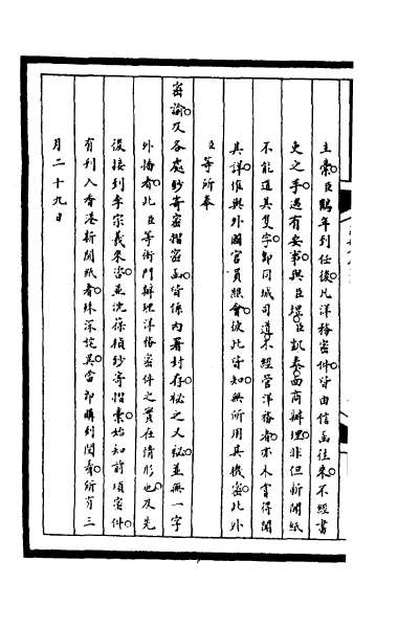 主稾臣鶴年到任後凡洋務密件皆由信函往來不經書
吏之手遇有要事與臣堃臣凱泰面商辦理非但新聞紙
不能道其隻字卽同城司道不經管洋務者亦未嘗得聞
其詳惟與外國官員組會彼此皆知無所用其機密此外
臣等所奉
密諭及各處鈔寄密摺密函皆係內署封存秘之又秘並無一字
外播者此臣等衙門辦理洋務密件之實在情形也及先
後接到李宗羲來咨並沈葆楨鈔寄摺稾始知前項密件
有刊入香港新聞紙者殊深詫異當卽購到閱看所有三
月二十九日